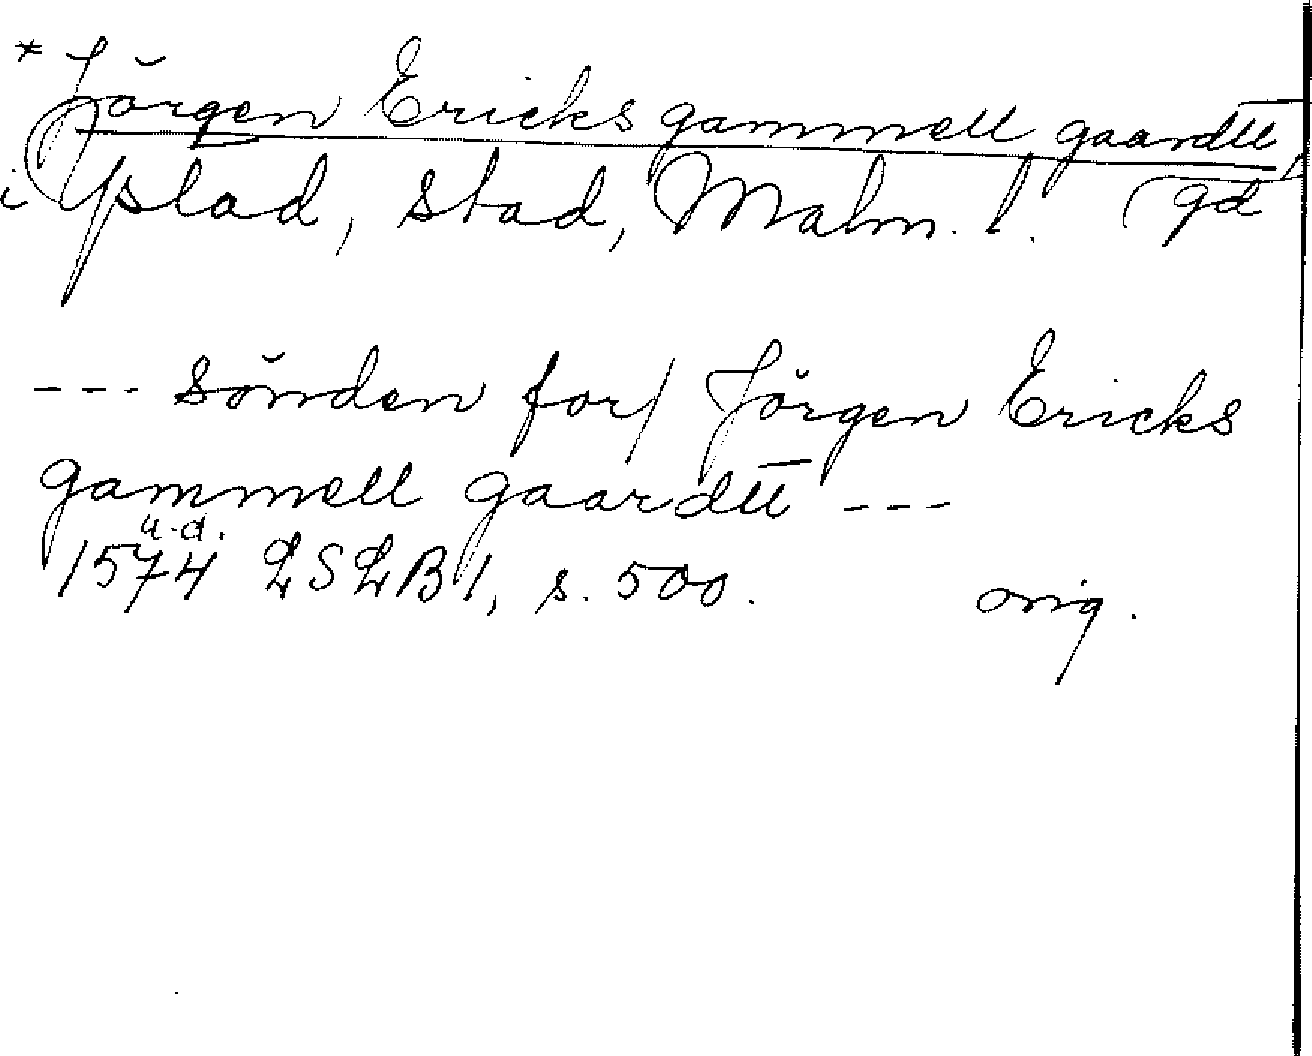 * Jŏrgen Ericks gammell gaardtt
i Ystad, stad, Malm. l. (gd
--- sŏnden for/ Jŏrgen Ericks
gammell gaardtt ---
u.d.
1574 LSLB 1, s. 500. orig.